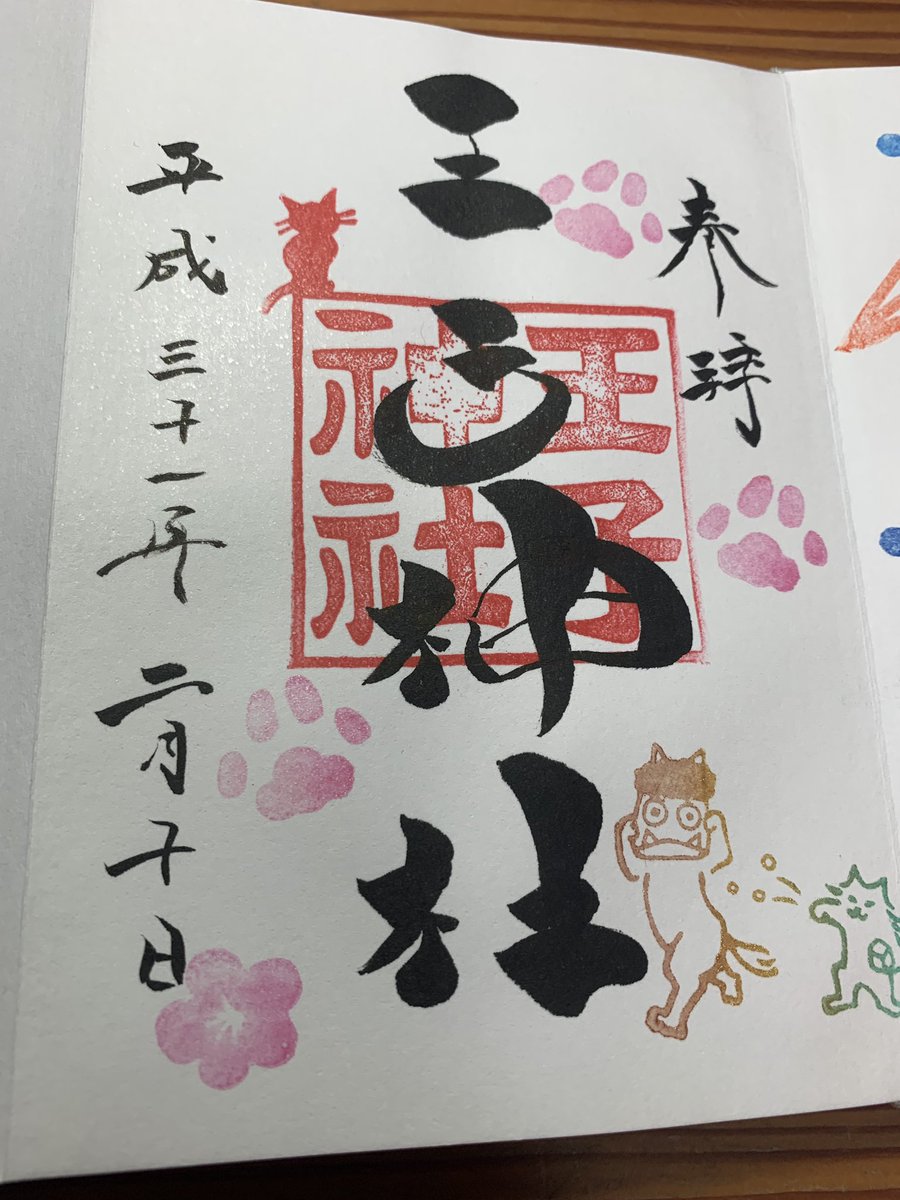 奉拝
王子神社
王子
神社
平成三十一年二月十日